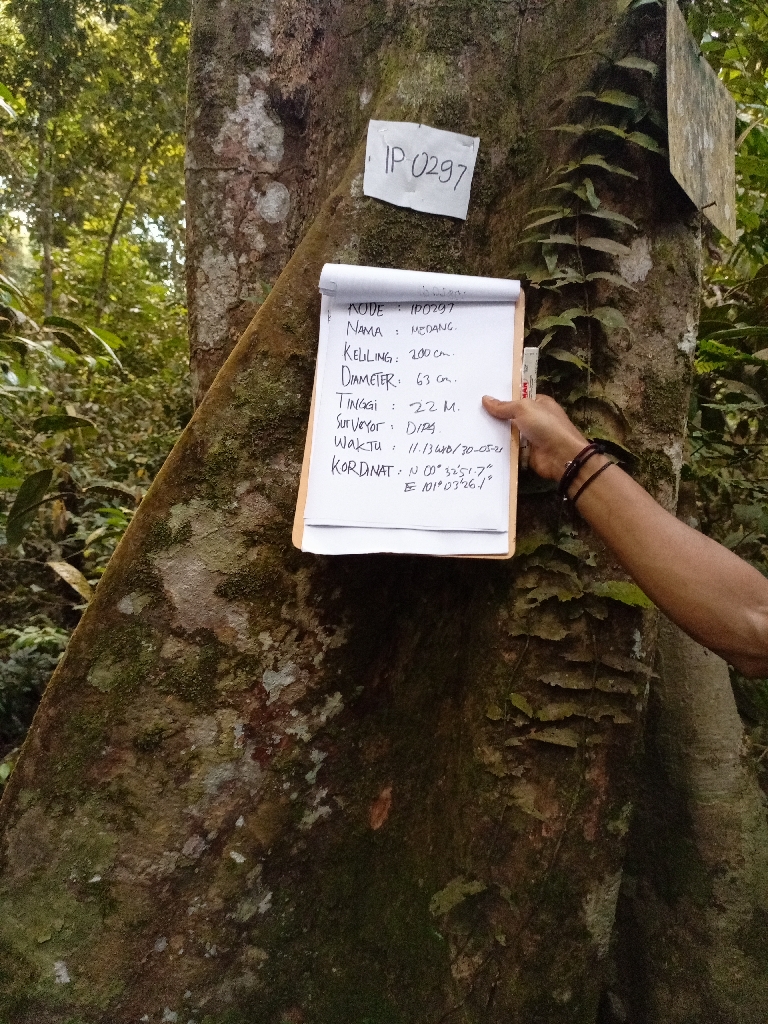 IP0297
KODE : IP0297
NAMA : MEDANG.
KELILING : 200 cm.
DIAMETER : 63 cm.
TINGGI : 22 M.
SURVEYOR : DIPA.
WAKTU : 11.13 WIB/30-05-21
KORDINAT : N 00° 32'51.7"
E 101° 03'26.1"